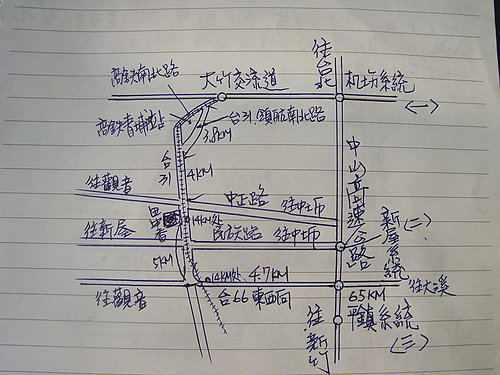 往台北
高鉄南北路
大竹交流道
机场系統
<一>
高鉄青埔站
台31.領航南北路
3.8KM
台31
4KM
中山高速公路
往觀音
中正路
往中坜
14KM处
新屋系統
<二>
往新屋
民族路
往中坜
5KM
14KM处
4.7KM
往觀音
台66東西向
65KM
往大溪
平鎮系統
<三>
往新竹